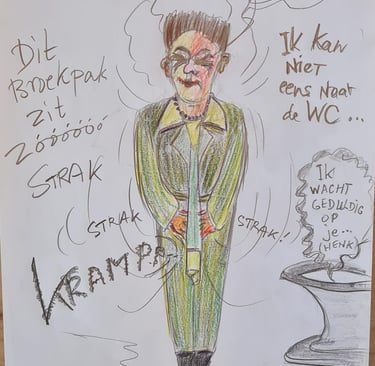 Dit
Broekpak
zit
zóóóóóó
STRAK
STRAK
STRAK!
KRAMPA
Ik kan
niet
eens naar
de WC...
IK
WACHT
GEDULDIG
OP
je...
(HENK)